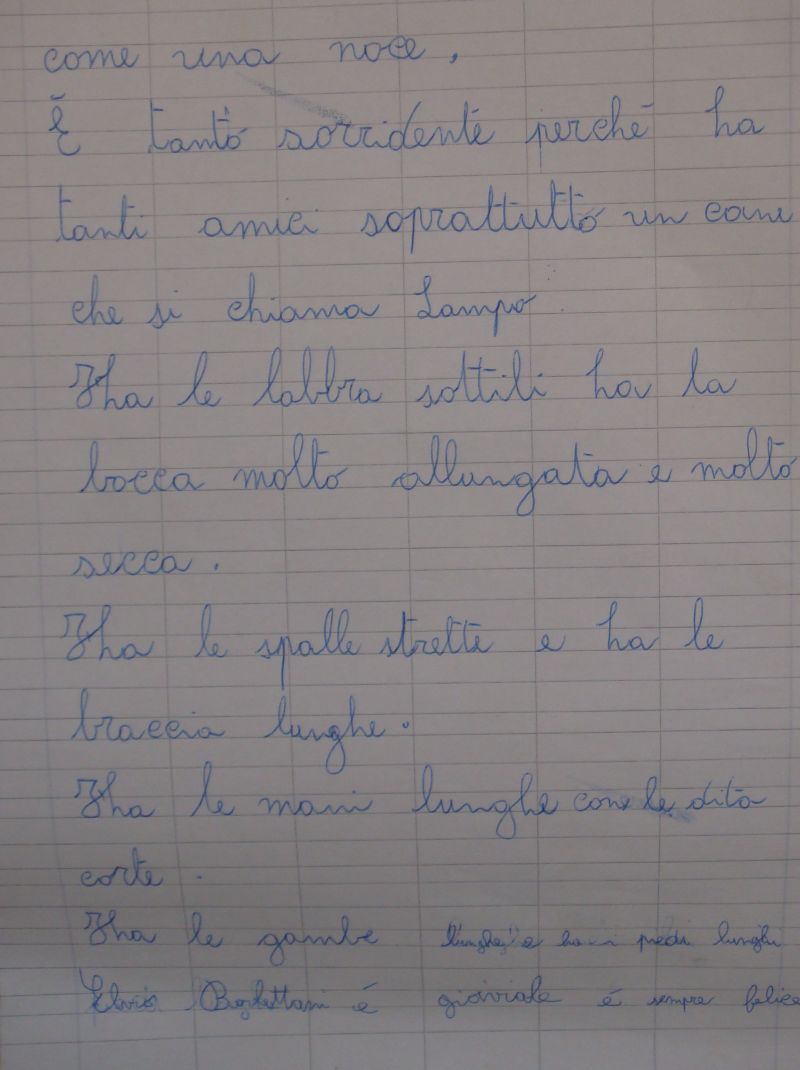 come una noce.
È tanto sorridente perché ha
tanti amici soprattutto un cane
che si chiama Lampo.
Ha le labbra sottili ha la
bocca molto allungata e molto
secca.
Ha le spalle strette e ha le
braccia lunghe.
Ha le mani lunghe con le dita
corte.
Ha le gambe lunghe e ha i piedi lunghi
Elvis è gioviale é sempre felice